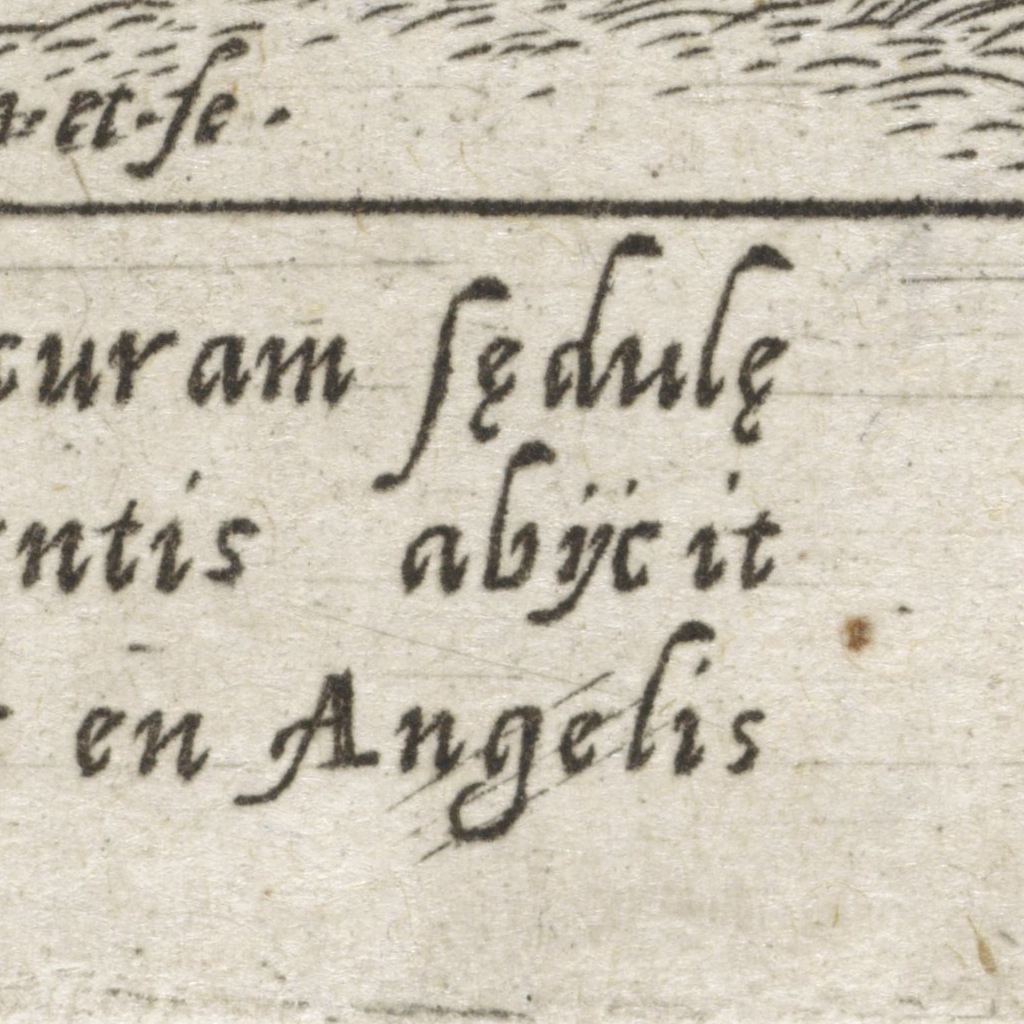 et·ſe·
curam ſędulę
ntis abijcit
en Angelis